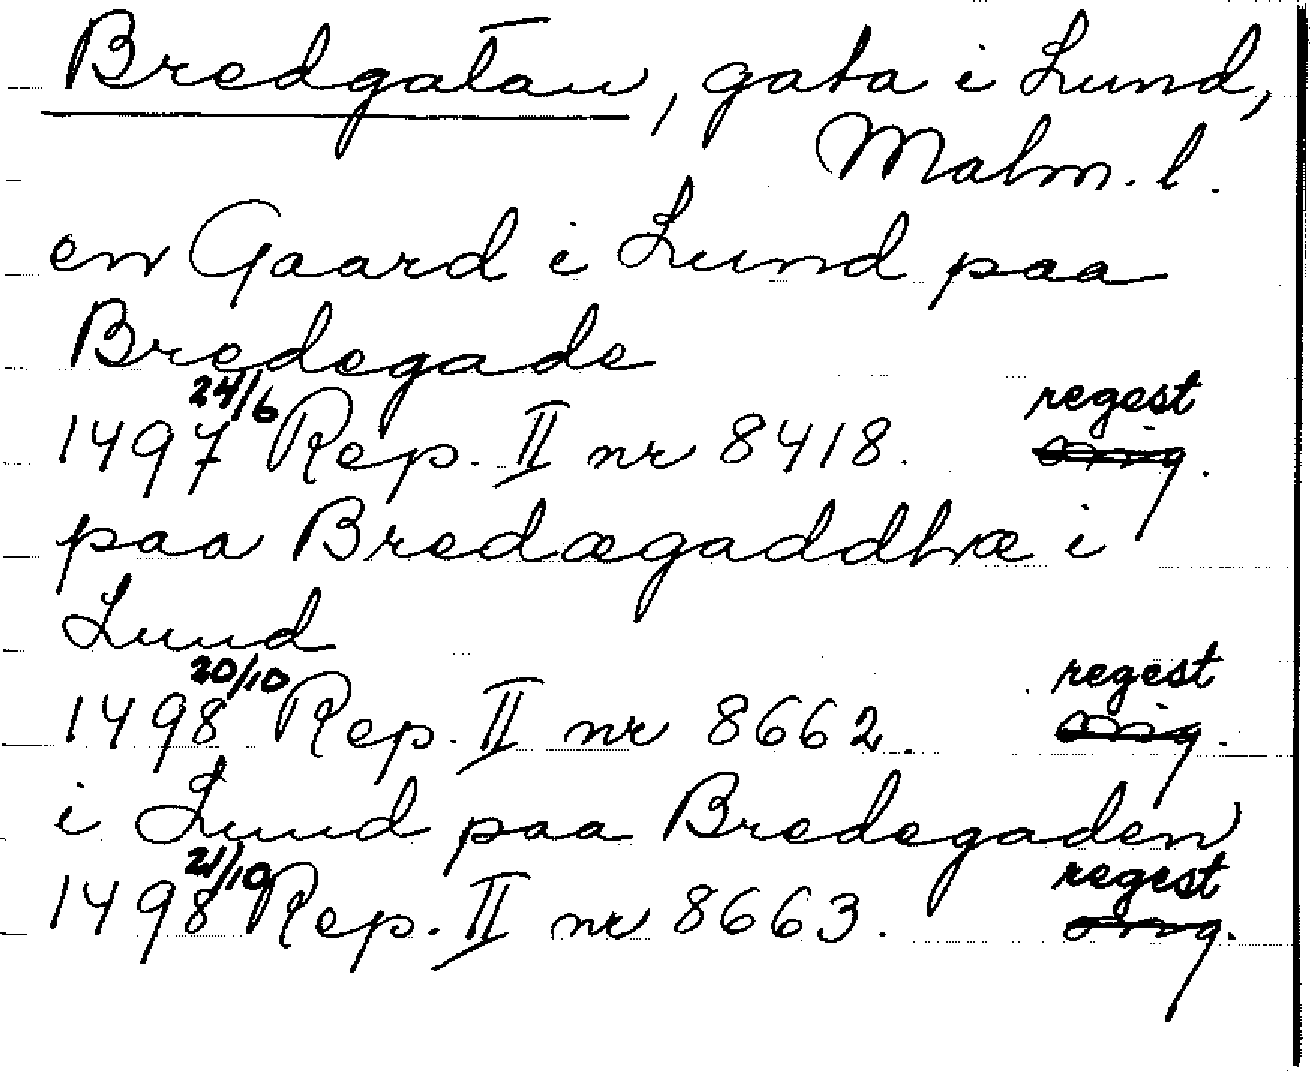 Bredgatan, gata i Lund,
Malm. l.
en Gaard i Lund paa
Bredegade
1497 24/6 Rep. II nr 8418. regest orig.
paa Bredægaddhæ i
Lund
1498 20/10 Rep. II nr 8662. regest orig.
i Lund paa Bredegaden
1498 21/10 Rep. II nr 8663. regest orig.